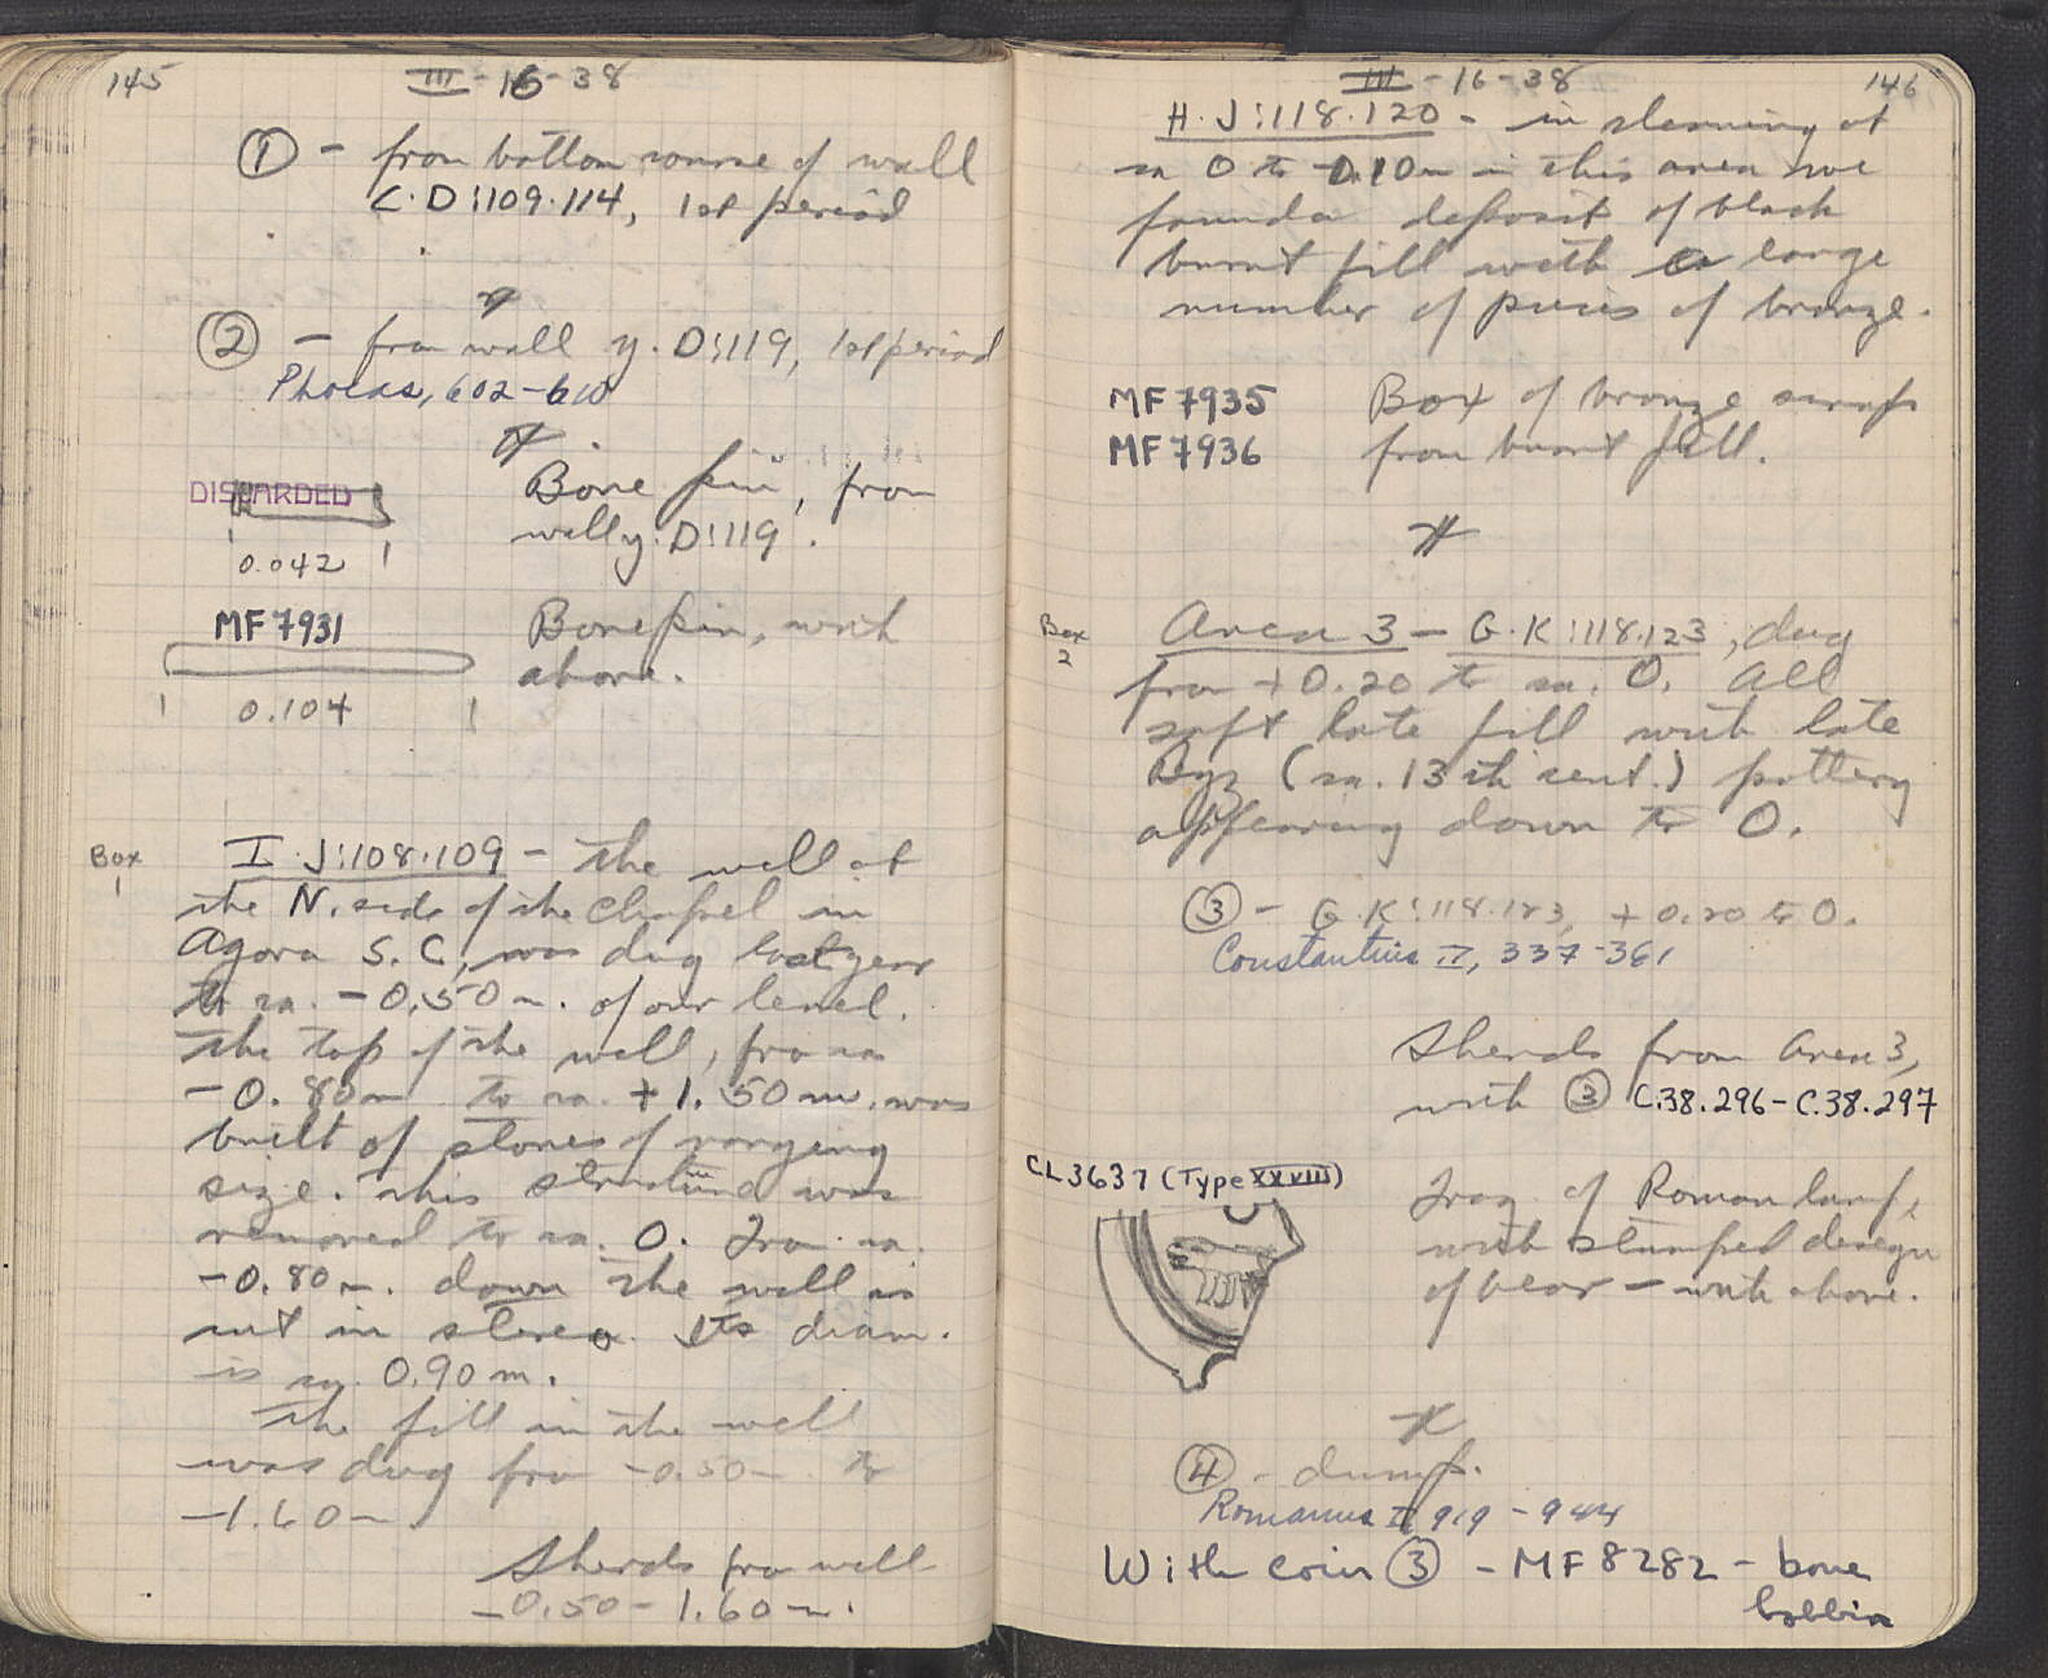 145
III - 16 - 38
① - from bottom course of wall
C.D:109.114, 1st period
② - from wall y.D:119, 1st period
Phocas, 602-610
DISCARDED
Bone pin, from
wall y.D:119.
0.042
MF 7931
Bone pin, with
above.
0.104
Box
1
I.J:108.109 - the well at
the N. side of the Chapel in
Agora S.C, was dug last year
to ca. -0.50 m. of our level.
The top of the well, from ca
-0.80 m to ca. +1.50 m. was
built of stones of varying
size. This structure was
removed to ca. 0. From ca.
-0.80 m. down the well is
cut in stereo. Its diam.
is ca. 0.90 m.
The fill in the well
was dug from -0.50 m. to
-1.60 m.
Sherds from well
-0.50 - 1.60 m.
III - 16 - 38
146
H.J:118.120 - in cleaning at
ca 0 to -0.10 m in this area we
found a deposit of black
burnt fill with a large
number of pieces of bronze.
MF 7935 Box of bronze scraps
MF 7936 from burnt fill.
Box
2
Area 3 - G.K:118.123, dug
from +0.20 to ca. 0. All
soft late fill with late
Byz (ca. 13th cent.) pottery
appearing down to 0.
③ - G.K:118.123, +0.20 to 0.
Constantius II, 337-361
Sherds from Area 3,
with ③ C.38.296 - C.38.297
CL 3637 (Type XXVIII)
Frag. of Roman lamp,
with stamped design
of bear - with above.
④ - dump.
Romanus I 919 - 944
With coin ③ - MF 8282 - bone
bobbin